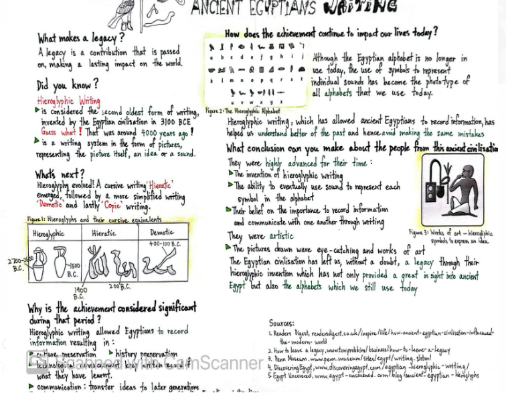 ANCIENT EGYPTIANS WRITING
What makes a legacy?
A legacy is a contribution that is passed
on, making a lasting impact on the world.
Did you know?
Hieroglyphic Writing
is considered the second oldest form of writing,
invented by the Egyptian civilisation in 3100 BCE
Guess what! That was around 4000 years ago!
is a writing system in the form of pictures,
representing the picture itself, an idea or a sound.
What's next?
Hieroglyphs evolved! A cursive writing 'Hieratic'
emerged, followed by a more simplified writing
'Demotic' and lastly 'Coptic' writing.
Figure 1: Hieroglyphs and their cursive equivalents
Hieroglyphic Hieratic Demotic
400-100 B.C.
1500 B.C.
1900 B.C.
Why is the achievement considered significant
during that period?
Hieroglyphic writing allowed Egyptians to record
information resulting in:
history preservation
what they have learnt.
communication: transfer ideas to later generations
How does the achievement continue to impact our lives today?
Although the Egyptian alphabet is no longer in
use today, the use of symbols to represent
individual sounds has become the prototype of
all alphabets that we use today.
Figure 2: The Hieroglyphic Alphabet
Hieroglyphic writing, which has allowed ancient Egyptians to record information, has
helped us understand better of the past and hence avoid making the same mistakes
What conclusion can you make about the people from this ancient civilisation
They were highly advanced for their time:
The invention of hieroglyphic writing
The ability to eventually use sound to represent each
symbol in the alphabet
Their belief on the importance to record information
and communicate with one another through writing
They were artistic
The pictures drawn were eye-catching and works of art
Figure 3: Works of art - hieroglyphic
symbols to express an idea.
The Egyptian civilisation has left us, without a doubt, a legacy through their
hieroglyphic invention which has not only provided a great insight into ancient
Egypt but also the alphabets which we still use today
Sources:
1. Readers Digest, readersdigest.co.uk/inspire/life/how-ancient-egyptian-civilisation-influenced-
the-modern-world
2. How to leave a legacy,
3. Penn Museum, www.penn.museum/sites/egypt/writing.shtml
4. Discovering Egypt, www.discoveringegypt.com/egyptian-hieroglyphic-writing/
CamScanner